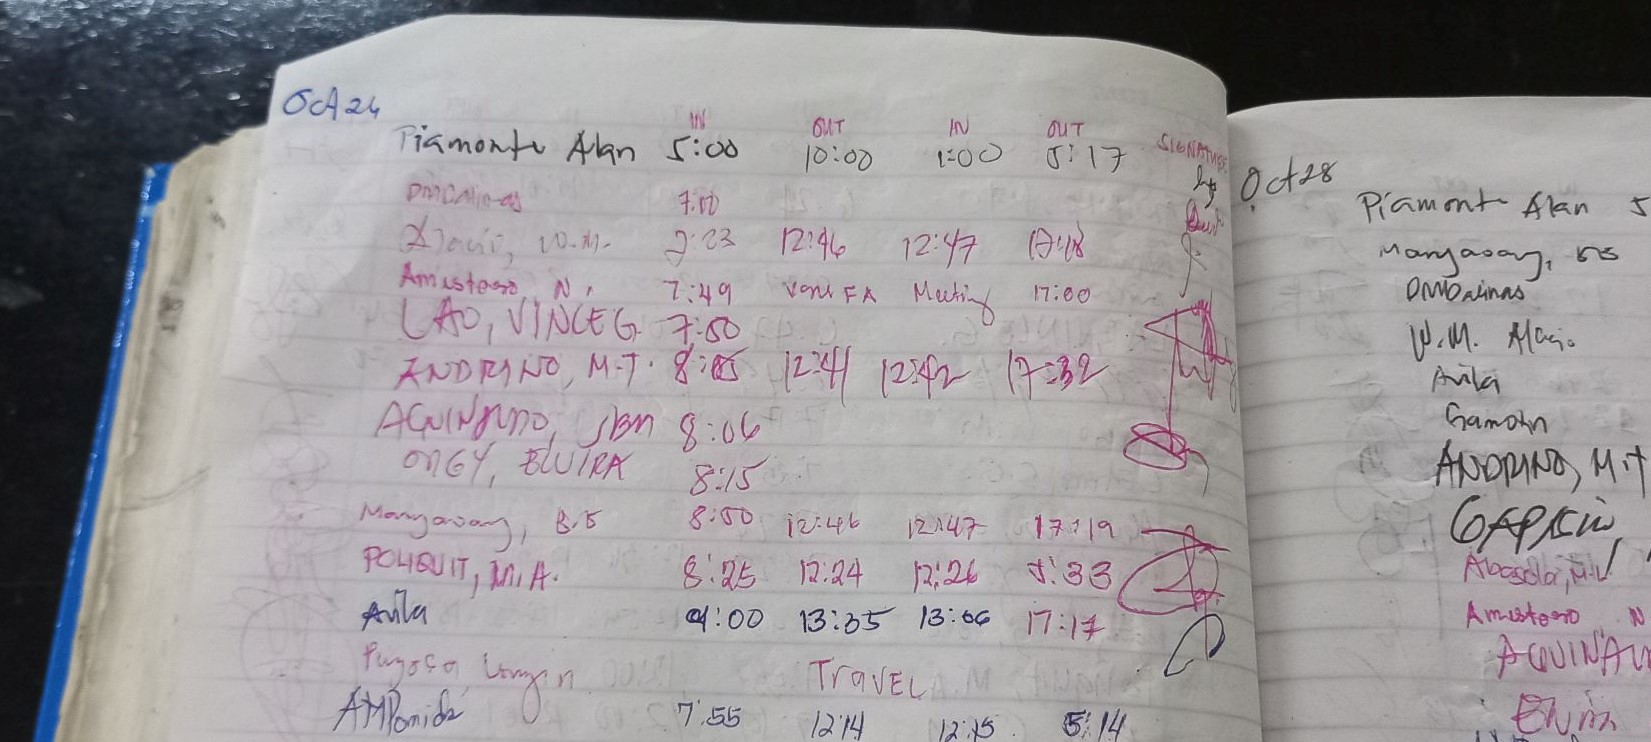 Oct 24
IN OUT IN OUT SIGNATURE
Piamonte Alan 5:00 10:00 1:00 5:17
DMDalinas 7:00
W.M. 7:23 12:46 12:47 17:18
Amistoso N. 7:49 FA Meeting 17:00
LAO, VINCE G. 7:50
ANDRINO, M.T. 8:05 12:41 12:42 17:32
AGUINALDO, JBM 8:06
ONGY, ELVIRA 8:15
Mangaoang, B.S 8:50 12:46 12:47 17:19
POLIQUIT, M.A. 8:25 12:24 12:26 5:33
Avila 9:00 13:35 13:06 17:17
TRAVEL
7:55 12:14 12:15 5:14
Oct 28
Piamonte Alan 5
Mangaoang, BS
DMDalinas
W.M.
Avila
Gamotin
ANDRINO, M.T
Amistoso N
AGUINAL